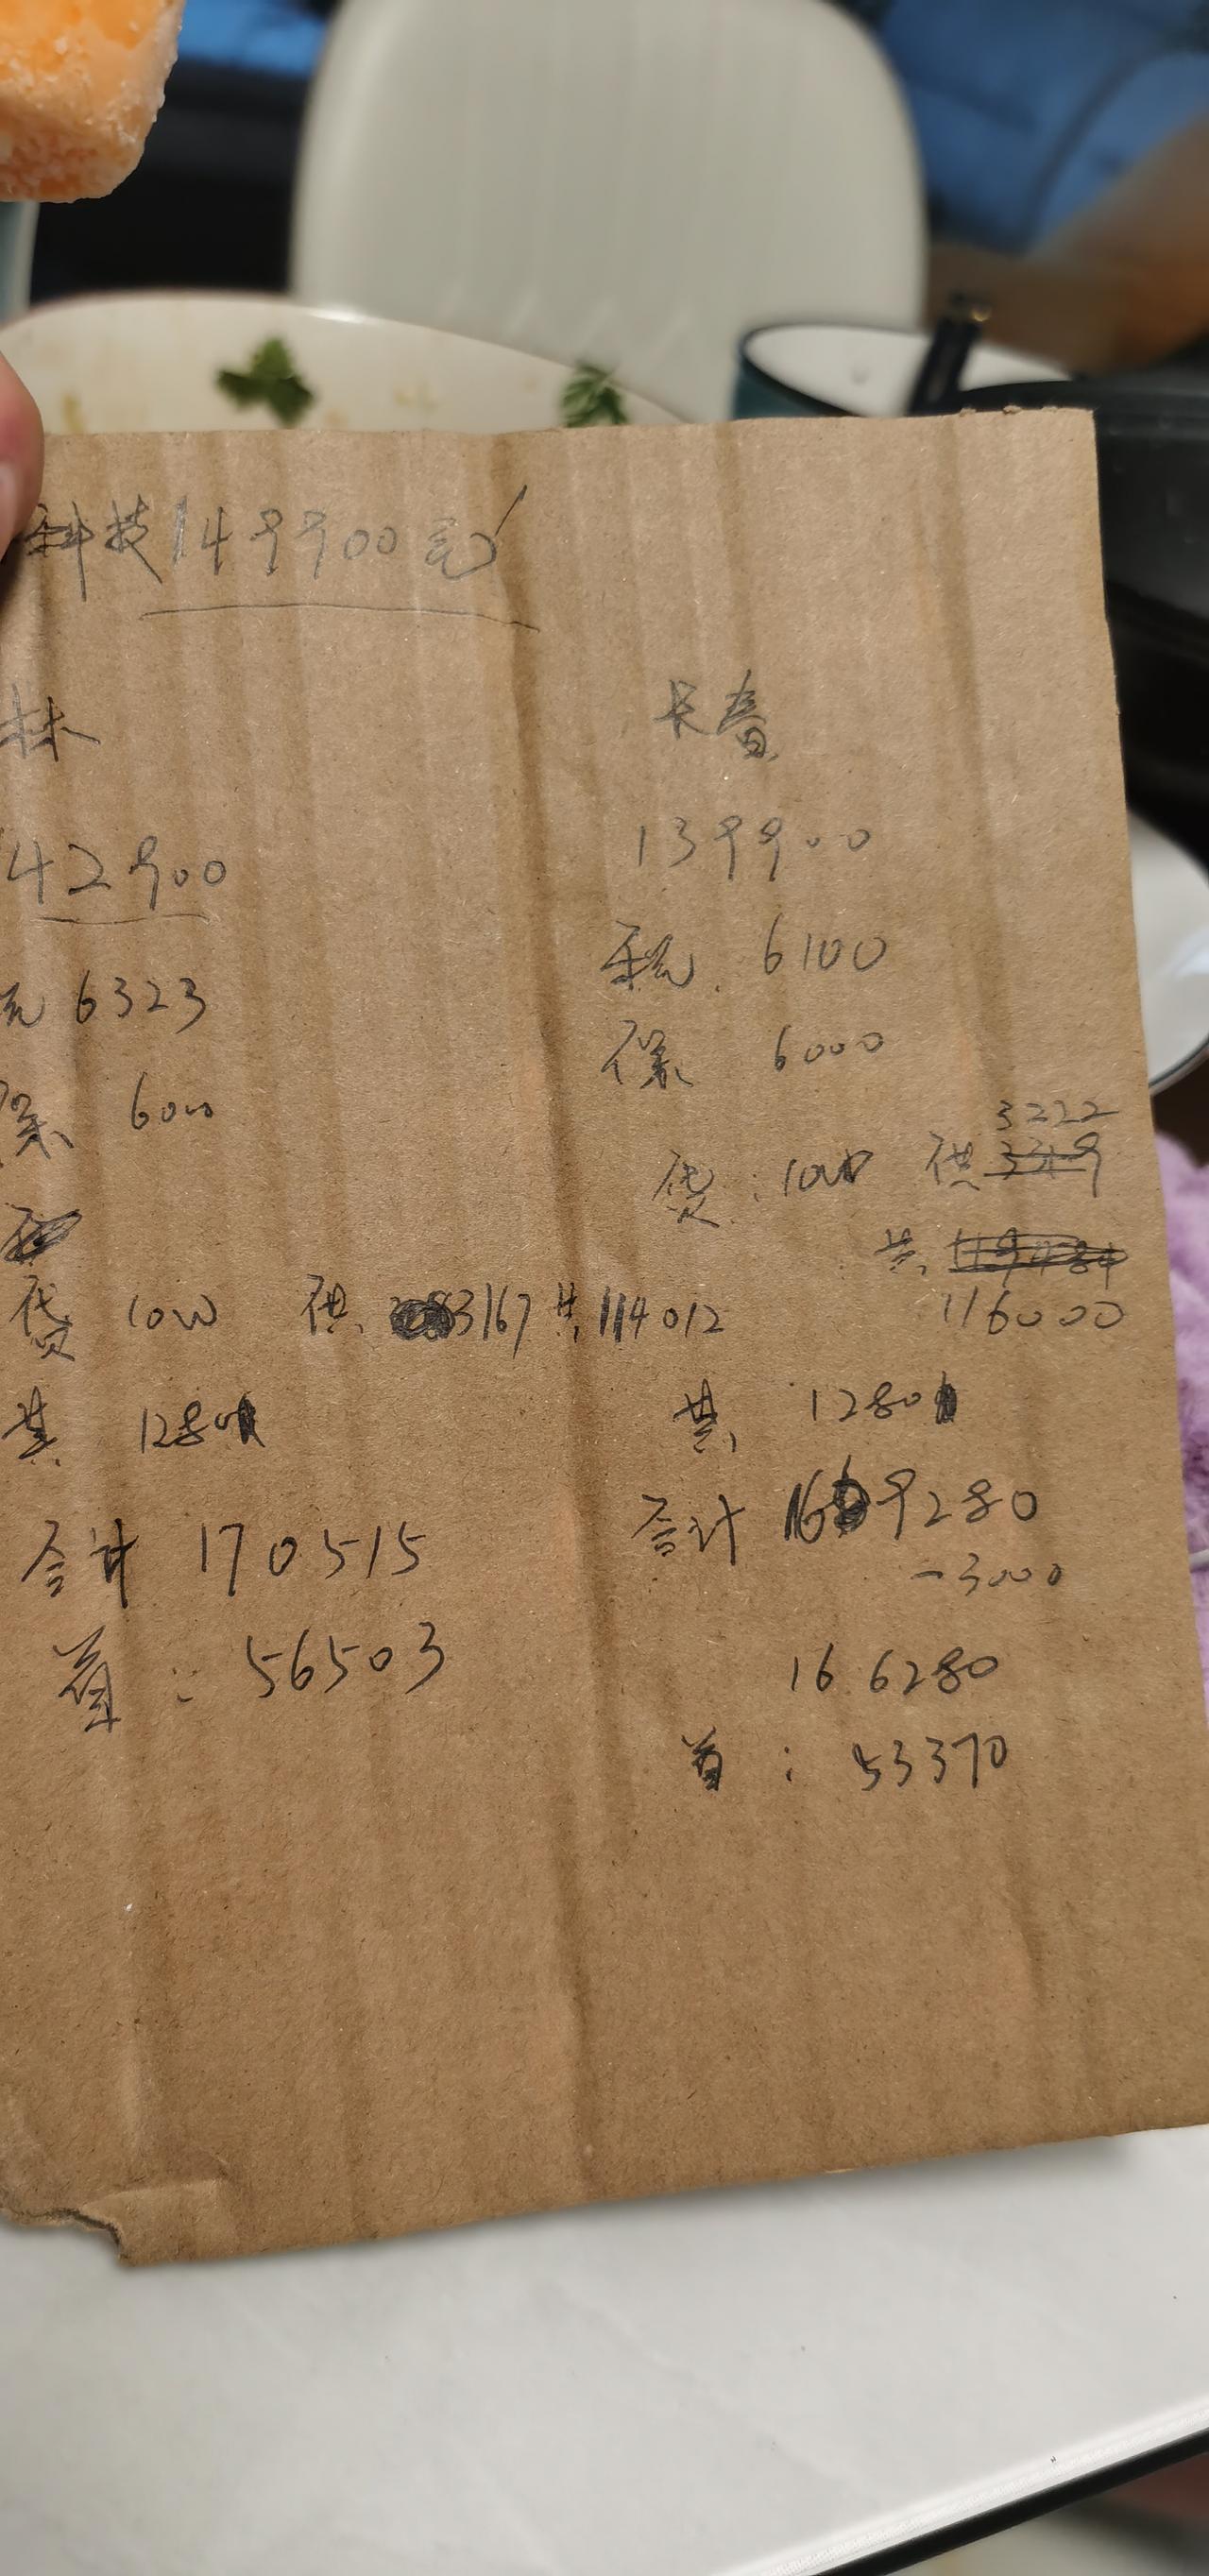 科技149900元
林
42900
6323
保 6000
贷 1000 供 3167 共 114012
共 1280
合计 170515
首：56503
长春
139900
税 6100
保 6000
3222
贷：1000 供
共
116000
共 1280
合计 169280
-3000
166280
首：53370